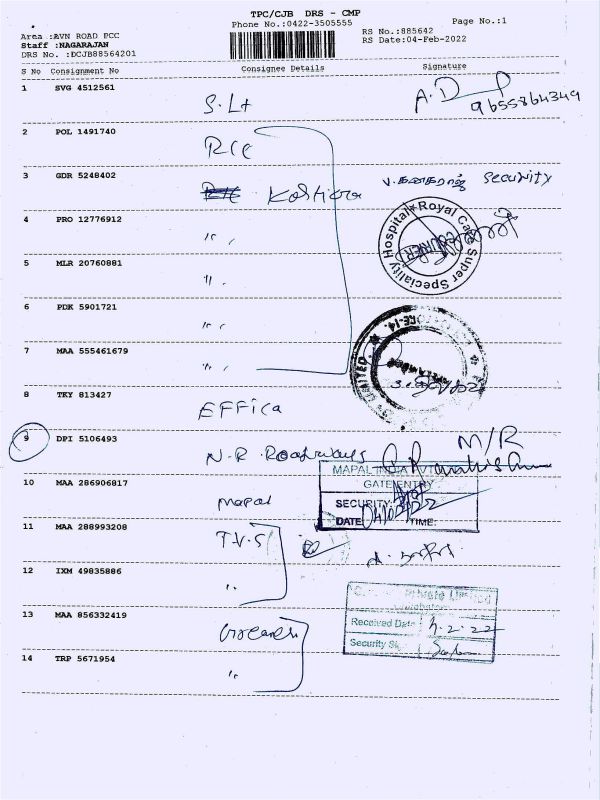 TPC/CJB DRS - CMP
Phone No.:0422-3505555
Page No.:1
Area :AVN ROAD PCC
Staff :NAGARAJAN
DRS No. :DCJB88564201
RS No.:885642
RS Date:04-Feb-2022
S No Consignment No Consignee Details Signature
1 SVG 4512561 S.Lt A.D
9655864349
2 POL 1491740 RCC
3 GDR 5248402 V.கனகராஜ் Security
4 PRO 12776912 " "
Royal Care Super Speciality Hospital
5 MLR 20760881 " "
6 PDK 5901721 " "
7 MAA 555461679 " "
LIMITED
8 TKY 813427 Effica
9 DPI 5106493 N.R. Roadways M/R
MAPAL INDIA PVT
GATE ENTRY
10 MAA 286906817 Mapal
SECURITY
DATE: 04/02/22 TIME:
11 MAA 288993208 T.V.S
12 IXM 49835886 "
Private Limited
13 MAA 856332419
Received Date 4.2.22
Security Sig
14 TRP 5671954 "